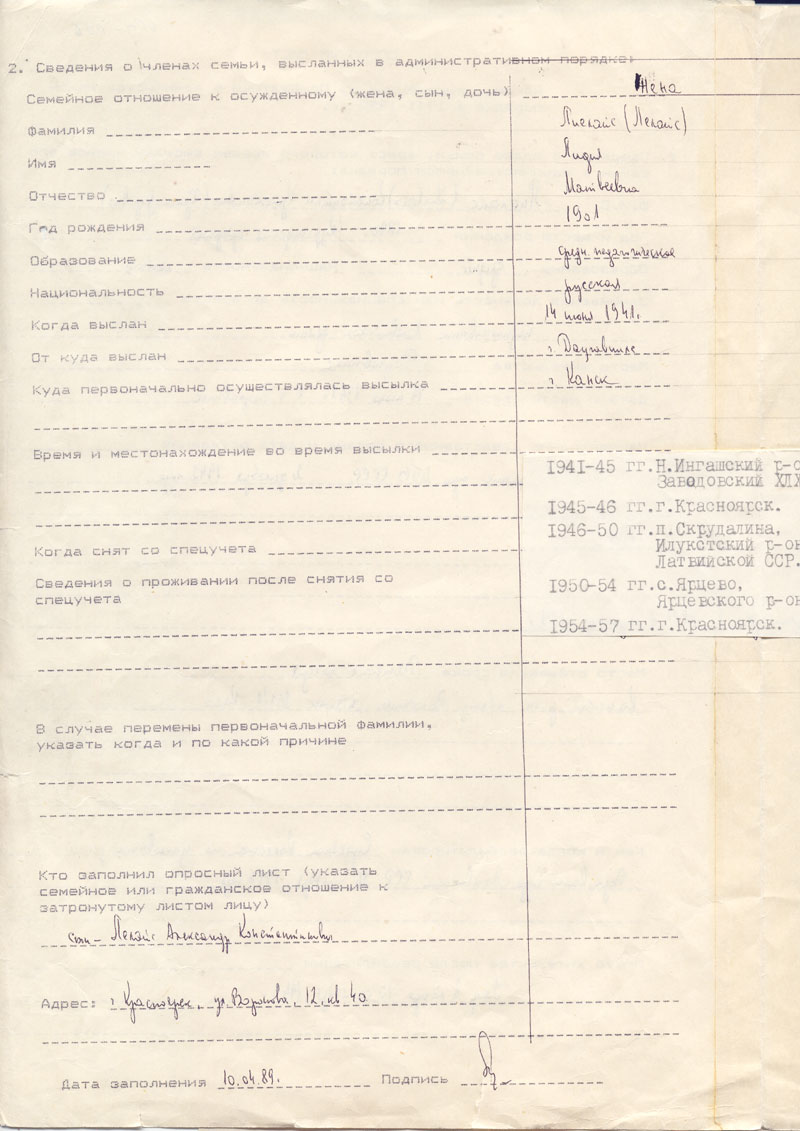 2. Сведения о членах семьи, высланных в административном порядке:
Семейное отношение к осужденному (жена, сын, дочь) Жена
Фамилия (Пекайс)
Имя Лидия
Отчество Матвеевна
Год рождения 1901
Образование средн. педагогическое
Национальность русская
Когда выслан 14 июня 1941.
От куда выслан г. Даугавпилс
Куда первоначально осуществлялась высылка г. Канск
Время и местонахождение во время высылки
1941-45 гг. Н.Ингашский р-о
Заводовский ХЛЖ
1945-46 гг. г.Красноярск.
1946-50 гг. п.Скрудалина,
Илукстский р-он
Латвийской ССР.
1950-54 гг. с.Ярцево,
Ярцевского р-он
1954-57 гг. г.Красноярск.
Когда снят со спецучета
Сведения о проживании после снятия со
спецучета
В случае перемены первоначальной фамилии,
указать когда и по какой причине
Кто заполнил опросный лист (указать
семейное или гражданское отношение к
затронутому листом лицу)
сын - Пекайс Александр Константинович
Адрес: г. Красноярск, ул. Воронова, 12, кв 40
Дата заполнения 10.04.89. Подпись